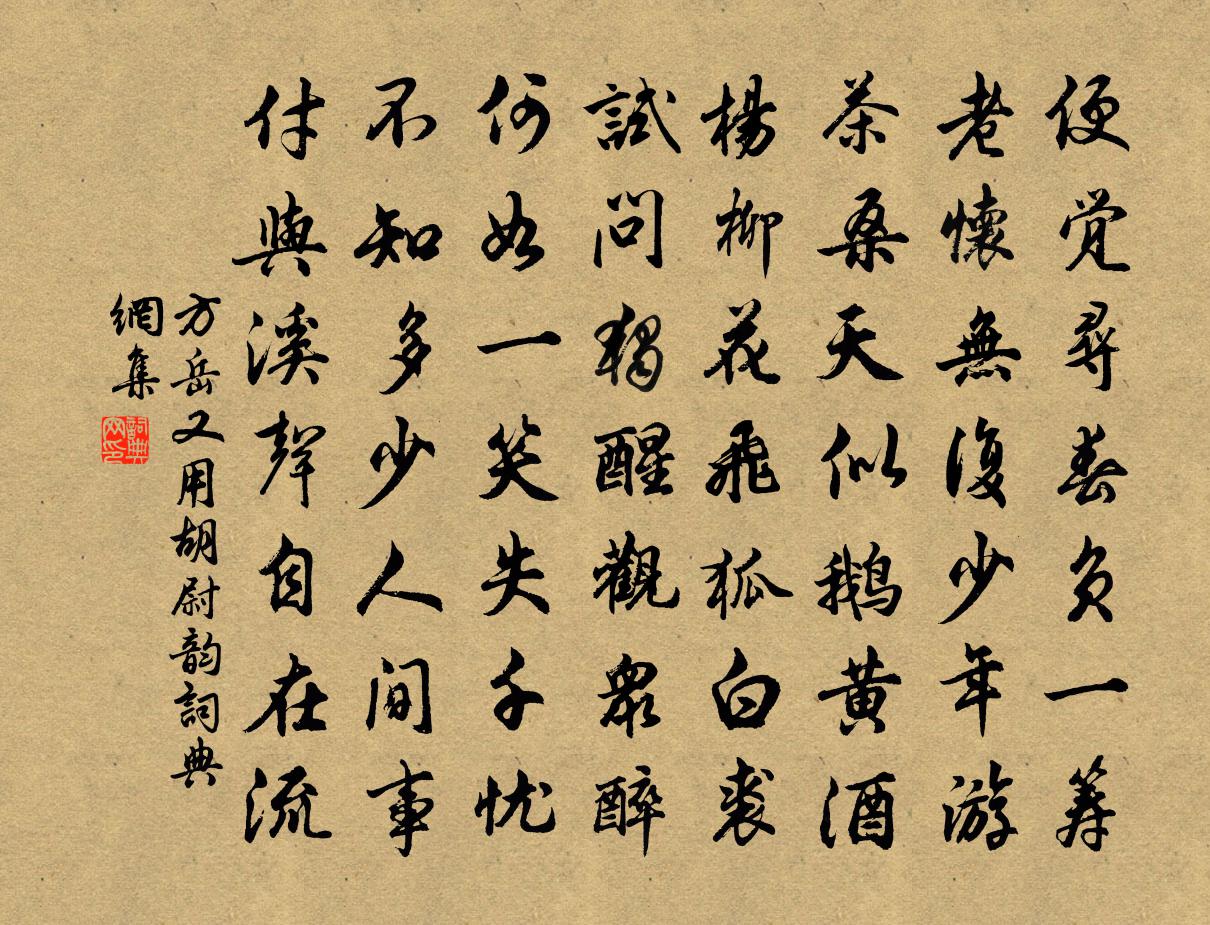 便觉尋春负一筹
老懷無復少年游
茶桑天似鵝黄酒
楊柳花飛狐白裘
試問獨醒觀眾醉
何如一笑失千忧
不知多少人間事
付與溪聲自在流
方岳又用胡尉韵詞典
網集
詞典
网印